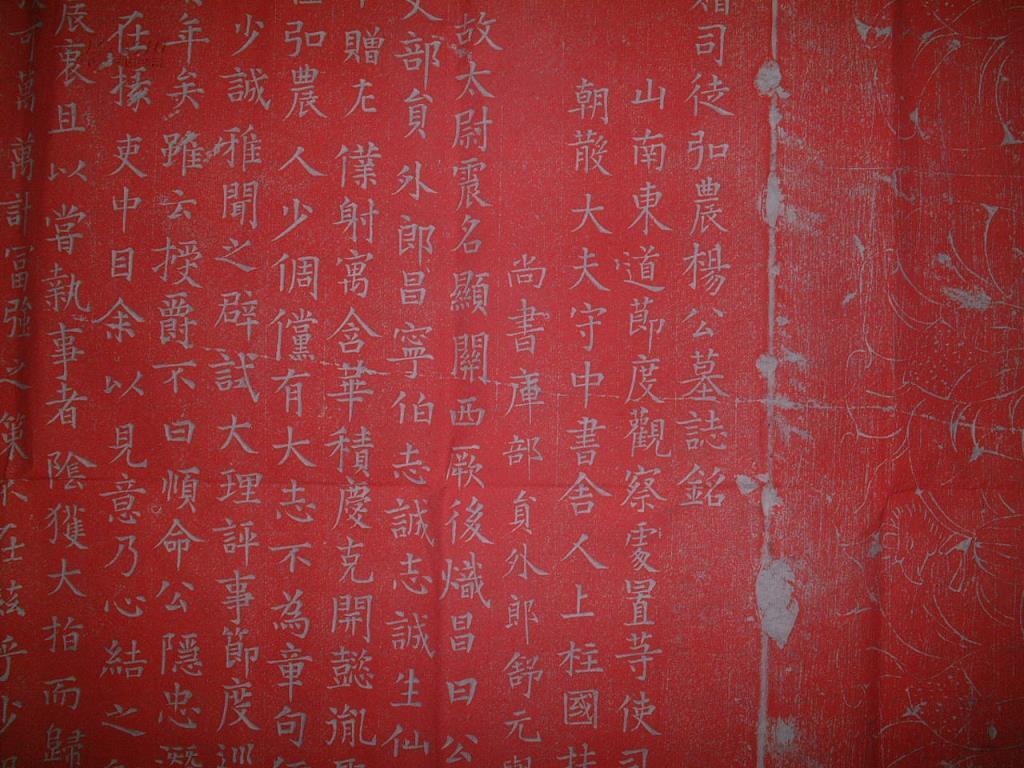 司徒弘農楊公墓誌銘
山南東道節度觀察處置等使司
朝散大夫守中書舍人上柱國
尚書庫部員外郎舒元
故太尉震名顯關西厥後熾昌曰公
部員外郎昌寧伯志誠志誠生仙
贈左僕射寓含華積慶克開懿胤
弘農人少倜儻有大志不為章句
少誠雅聞之辟試大理評事節度巡
年矣雖云授爵不曰順命公隱忠
在掾吏中目余以見意乃心結之
辰衷且以嘗執事者陰獲大指而歸
可萬萬計富強之策